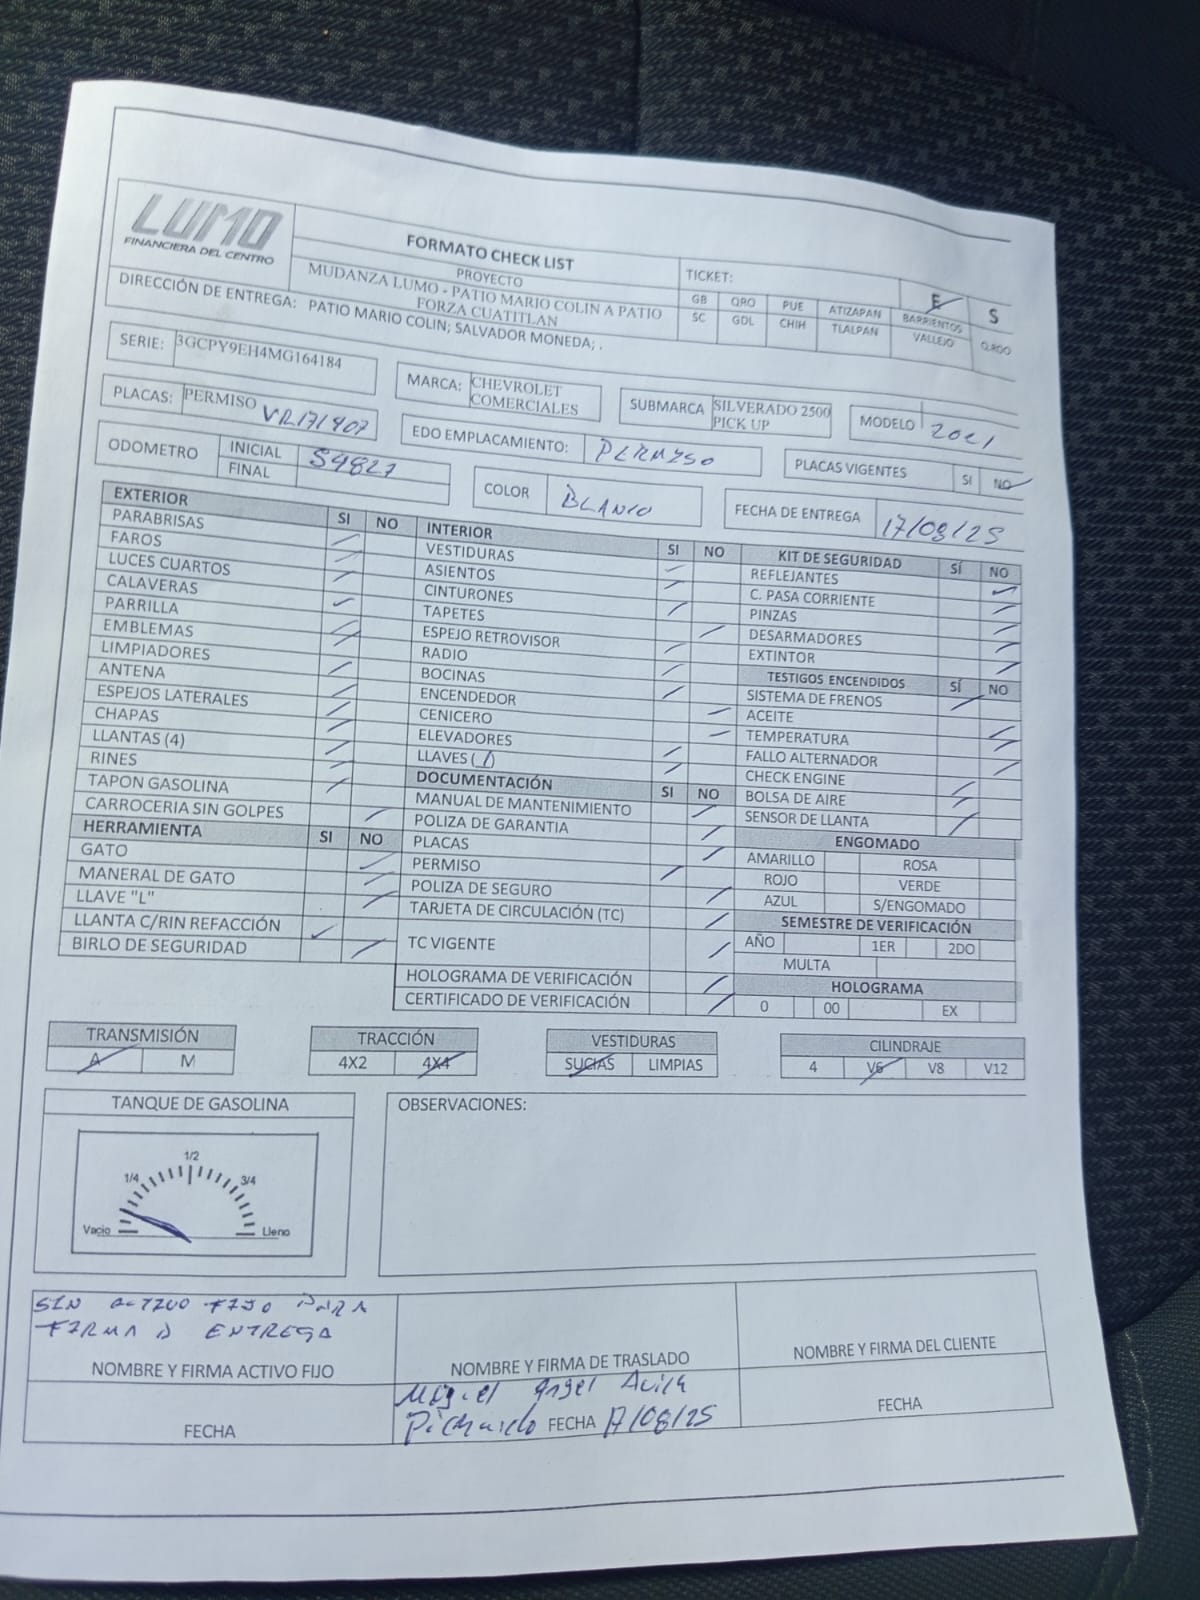 LUMO
FINANCIERA DEL CENTRO
FORMATO CHECK LIST
PROYECTO
MUDANZA LUMO - PATIO MARIO COLIN A PATIO
FORZA CUATITLAN
TICKET:
GB QRO PUE ATIZAPAN BARRIENTOS E S
SC GDL CHIH TLALPAN VALLEJO Q.ROO
DIRECCIÓN DE ENTREGA: PATIO MARIO COLIN; SALVADOR MONEDA; .
SERIE: 3GCPY9EH4MG164184
MARCA: CHEVROLET
COMERCIALES
SUBMARCA SILVERADO 2500
PICK UP
MODELO 2021
PLACAS: PERMISO VR171407
EDO EMPLACAMIENTO: PERMISO
PLACAS VIGENTES SI NO
ODOMETRO INICIAL 54827
FINAL
COLOR BLANCO
FECHA DE ENTREGA 17/08/25
EXTERIOR SI NO
PARABRISAS
FAROS
LUCES CUARTOS
CALAVERAS
PARRILLA
EMBLEMAS
LIMPIADORES
ANTENA
ESPEJOS LATERALES
CHAPAS
LLANTAS (4)
RINES
TAPON GASOLINA
CARROCERIA SIN GOLPES
HERRAMIENTA SI NO
GATO
MANERAL DE GATO
LLAVE "L"
LLANTA C/RIN REFACCIÓN
BIRLO DE SEGURIDAD
INTERIOR SI NO
VESTIDURAS
ASIENTOS
CINTURONES
TAPETES
ESPEJO RETROVISOR
RADIO
BOCINAS
ENCENDEDOR
CENICERO
ELEVADORES
LLAVES ( 1 )
DOCUMENTACIÓN SI NO
MANUAL DE MANTENIMIENTO
POLIZA DE GARANTIA
PLACAS
PERMISO
POLIZA DE SEGURO
TARJETA DE CIRCULACIÓN (TC)
TC VIGENTE
HOLOGRAMA DE VERIFICACIÓN
CERTIFICADO DE VERIFICACIÓN
KIT DE SEGURIDAD SÍ NO
REFLEJANTES
C. PASA CORRIENTE
PINZAS
DESARMADORES
EXTINTOR
TESTIGOS ENCENDIDOS SÍ NO
SISTEMA DE FRENOS
ACEITE
TEMPERATURA
FALLO ALTERNADOR
CHECK ENGINE
BOLSA DE AIRE
SENSOR DE LLANTA
ENGOMADO
AMARILLO ROSA
ROJO VERDE
AZUL S/ENGOMADO
SEMESTRE DE VERIFICACIÓN
AÑO 1ER 2DO
MULTA
HOLOGRAMA
0 00 EX
TRANSMISIÓN
A M
TRACCIÓN
4X2 4X4
VESTIDURAS
SUCIAS LIMPIAS
CILINDRAJE
4 V6 V8 V12
TANQUE DE GASOLINA
1/2
1/4 3/4
Vacio Lleno
OBSERVACIONES:
SIN ACTIVO FIJO PARA
FIRMA D ENTREGA
NOMBRE Y FIRMA ACTIVO FIJO
FECHA
NOMBRE Y FIRMA DE TRASLADO
Miguel Angel Avila
Pichardo FECHA 17/08/25
NOMBRE Y FIRMA DEL CLIENTE
FECHA